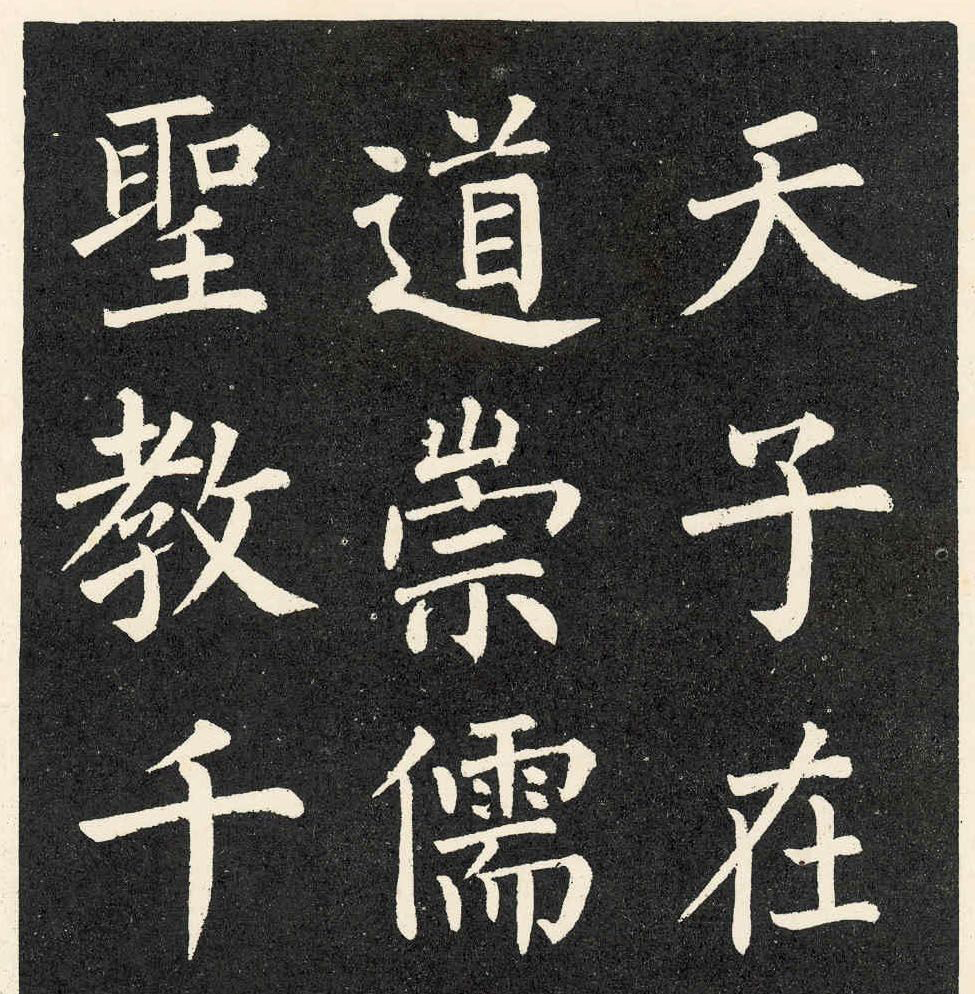 天子在
道崇儒
聖教千